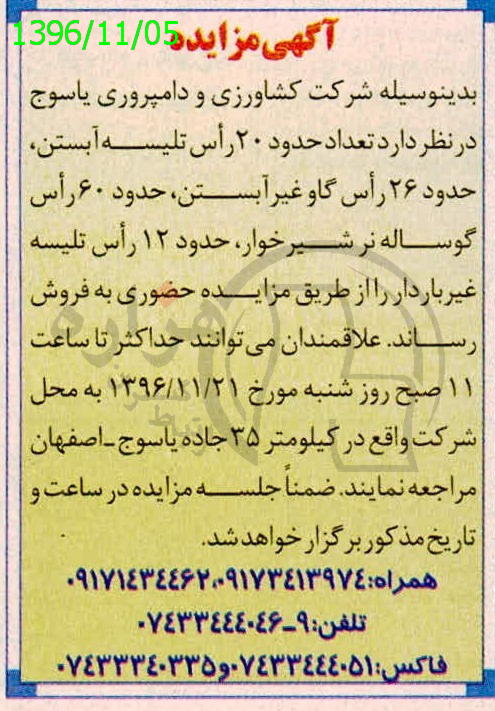 1396/11/05
آگهی مزایده
بدینوسیله شرکت کشاورزی و دامپروری یاسوج
در نظر دارد تعداد حدود ۲۰ رأس تلیسه آبستن،
حدود ۲۶ رأس گاو غیر آبستن، حدود ۶۰ رأس
گوساله نر شیرخوار، حدود ۱۲ رأس تلیسه
غیر باردار را از طریق مزایده حضوری به فروش
رساند. علاقمندان می توانند حداکثر تا ساعت
۱۱ صبح روز شنبه مورخ ۱۳۹۶/۱۱/۲۱ به محل
شرکت واقع در کیلومتر ۳۵ جاده یاسوج ـ اصفهان
مراجعه نمایند. ضمناً جلسه مزایده در ساعت و
تاریخ مذکور برگزار خواهد شد.
همراه: ۰۹۱۷۳۴۱۳۹۷۴ ،۰۹۱۷۱۴۳۴۴۶۲
تلفن: ۹ـ۰۷۴۳۳۴۴۴۰۴۶
فاکس: ۰۷۴۳۳۴۴۴۰۵۱ و ۰۷۴۳۳۳۴۰۳۳۵
هزاره